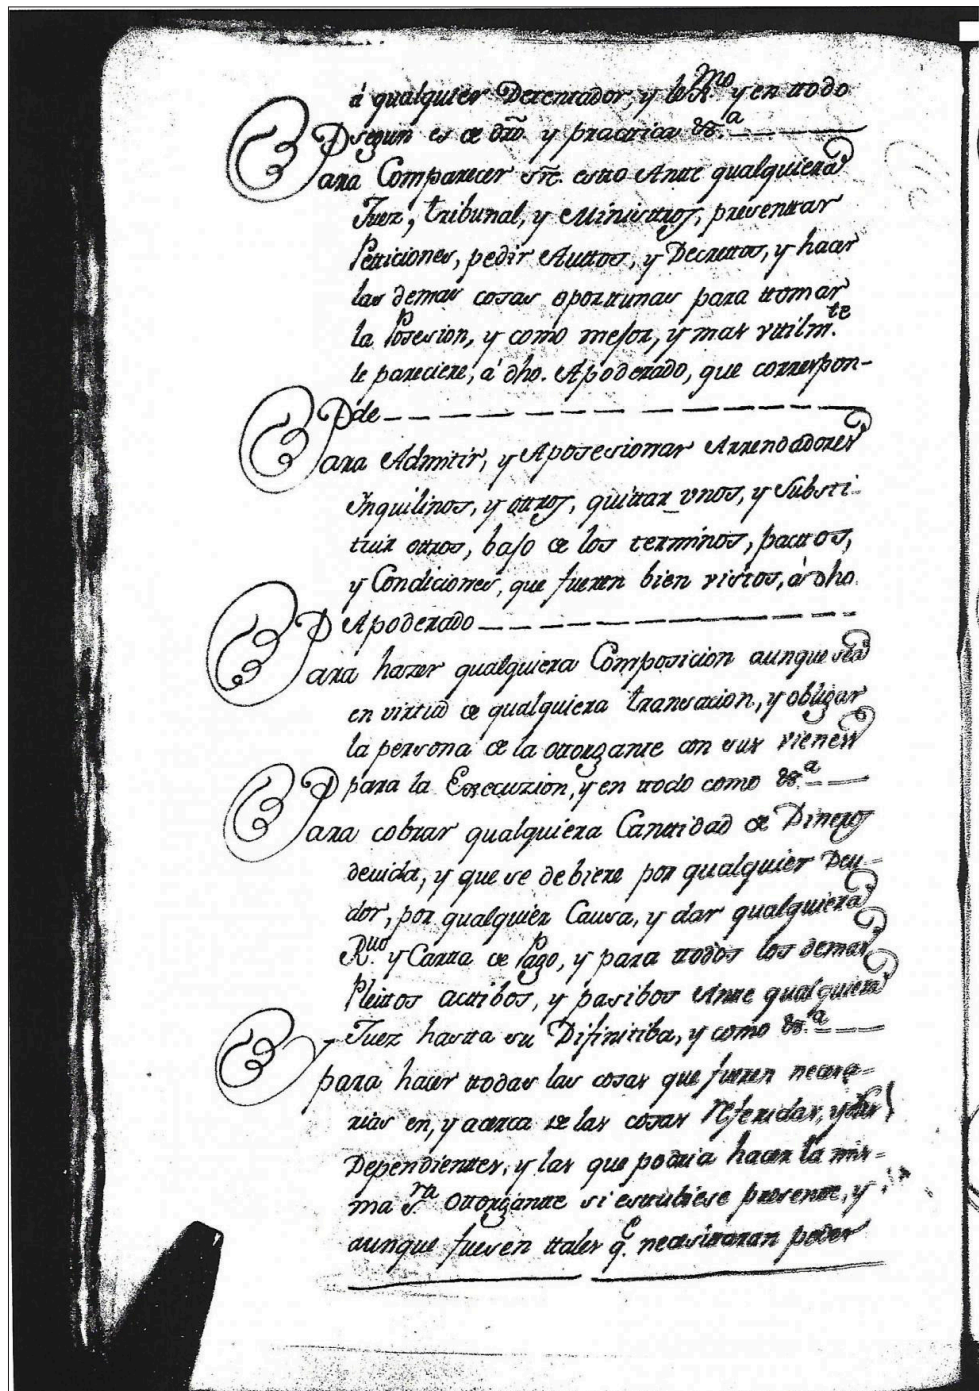 á qualquier Detentador, y leg.mo y en ttodo
segun es de dro. y practica &.a
Para Comparecer sre. estto Antte qualquiera
Juez, tribunal, y Ministtros, presenttar
Petticiones, pedir Auttos, y Decrettos, y hacer
las demas cosas oporttunas para ttomar
la Posesion, y como mejor, y mas vttilm.te
le pareciere, á dho. Apoderado, que correspon-
de
Para Admitir, y Aposesionar Arrendadores
Inquilinos, y ottros, quittar vnos, y Substi-
tuir ottros, bajo de los terminos, pacttos,
y Condiciones, que fueren bien vistos, á dho
Apoderado
Para hazer qualquiera Composicion aunque sea
en virttud de qualquiera transacion, y obligar
la persona de la ottorgante con sus vienes
para la Execuzion, y en ttodo como &.a
Para cobrar qualquiera Canttidad de Dineros
devida, y que se debiere por qualquier Deu-
dor, por qualquier Causa, y dar qualquiera
R.vo y Cartta de Pago, y para ttodos los demas
Pleittos acttibos, y pasibos Antte qualquiera
Juez hastta su Difinitiba, y como &.a
Y para hacer ttodas las cosas que fueren necesa-
rias en, y acerca de las cosas referidas, y sus
Dependientes, y las que podria hacer la mis-
ma S.ra Ottorgantte si esttubiese presentte, y
aunque fuesen ttales q.e necesittaran poder